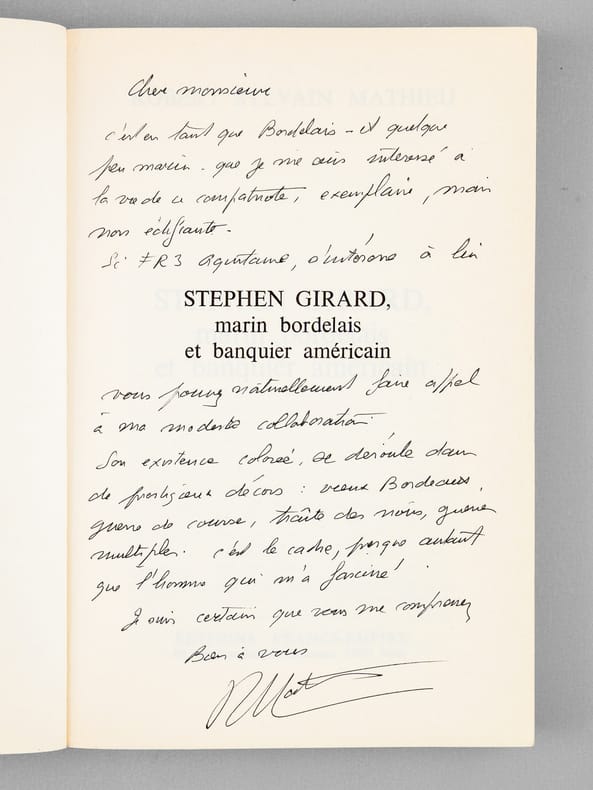 Cher monsieur
c'est en tant que Bordelais - et quelque
peu marin - que je me suis intéressé à
la vie de ce compatriote, exemplaire, mais
non édifiante.
Si FR3 Aquitaine, s'intéresse à lui
STEPHEN GIRARD,
marin bordelais
et banquier américain
vous pouvez naturellement faire appel
à ma modeste collaboration.
Son existence colorée, se déroule dans
de prodigieux décors : vieux Bordeaux,
guerre de course, traite des noirs, guerres
multiples. c'est le cadre, presque autant
que l'homme qui m'a fasciné !
Je suis certain que vous me comprenez
Bien à vous